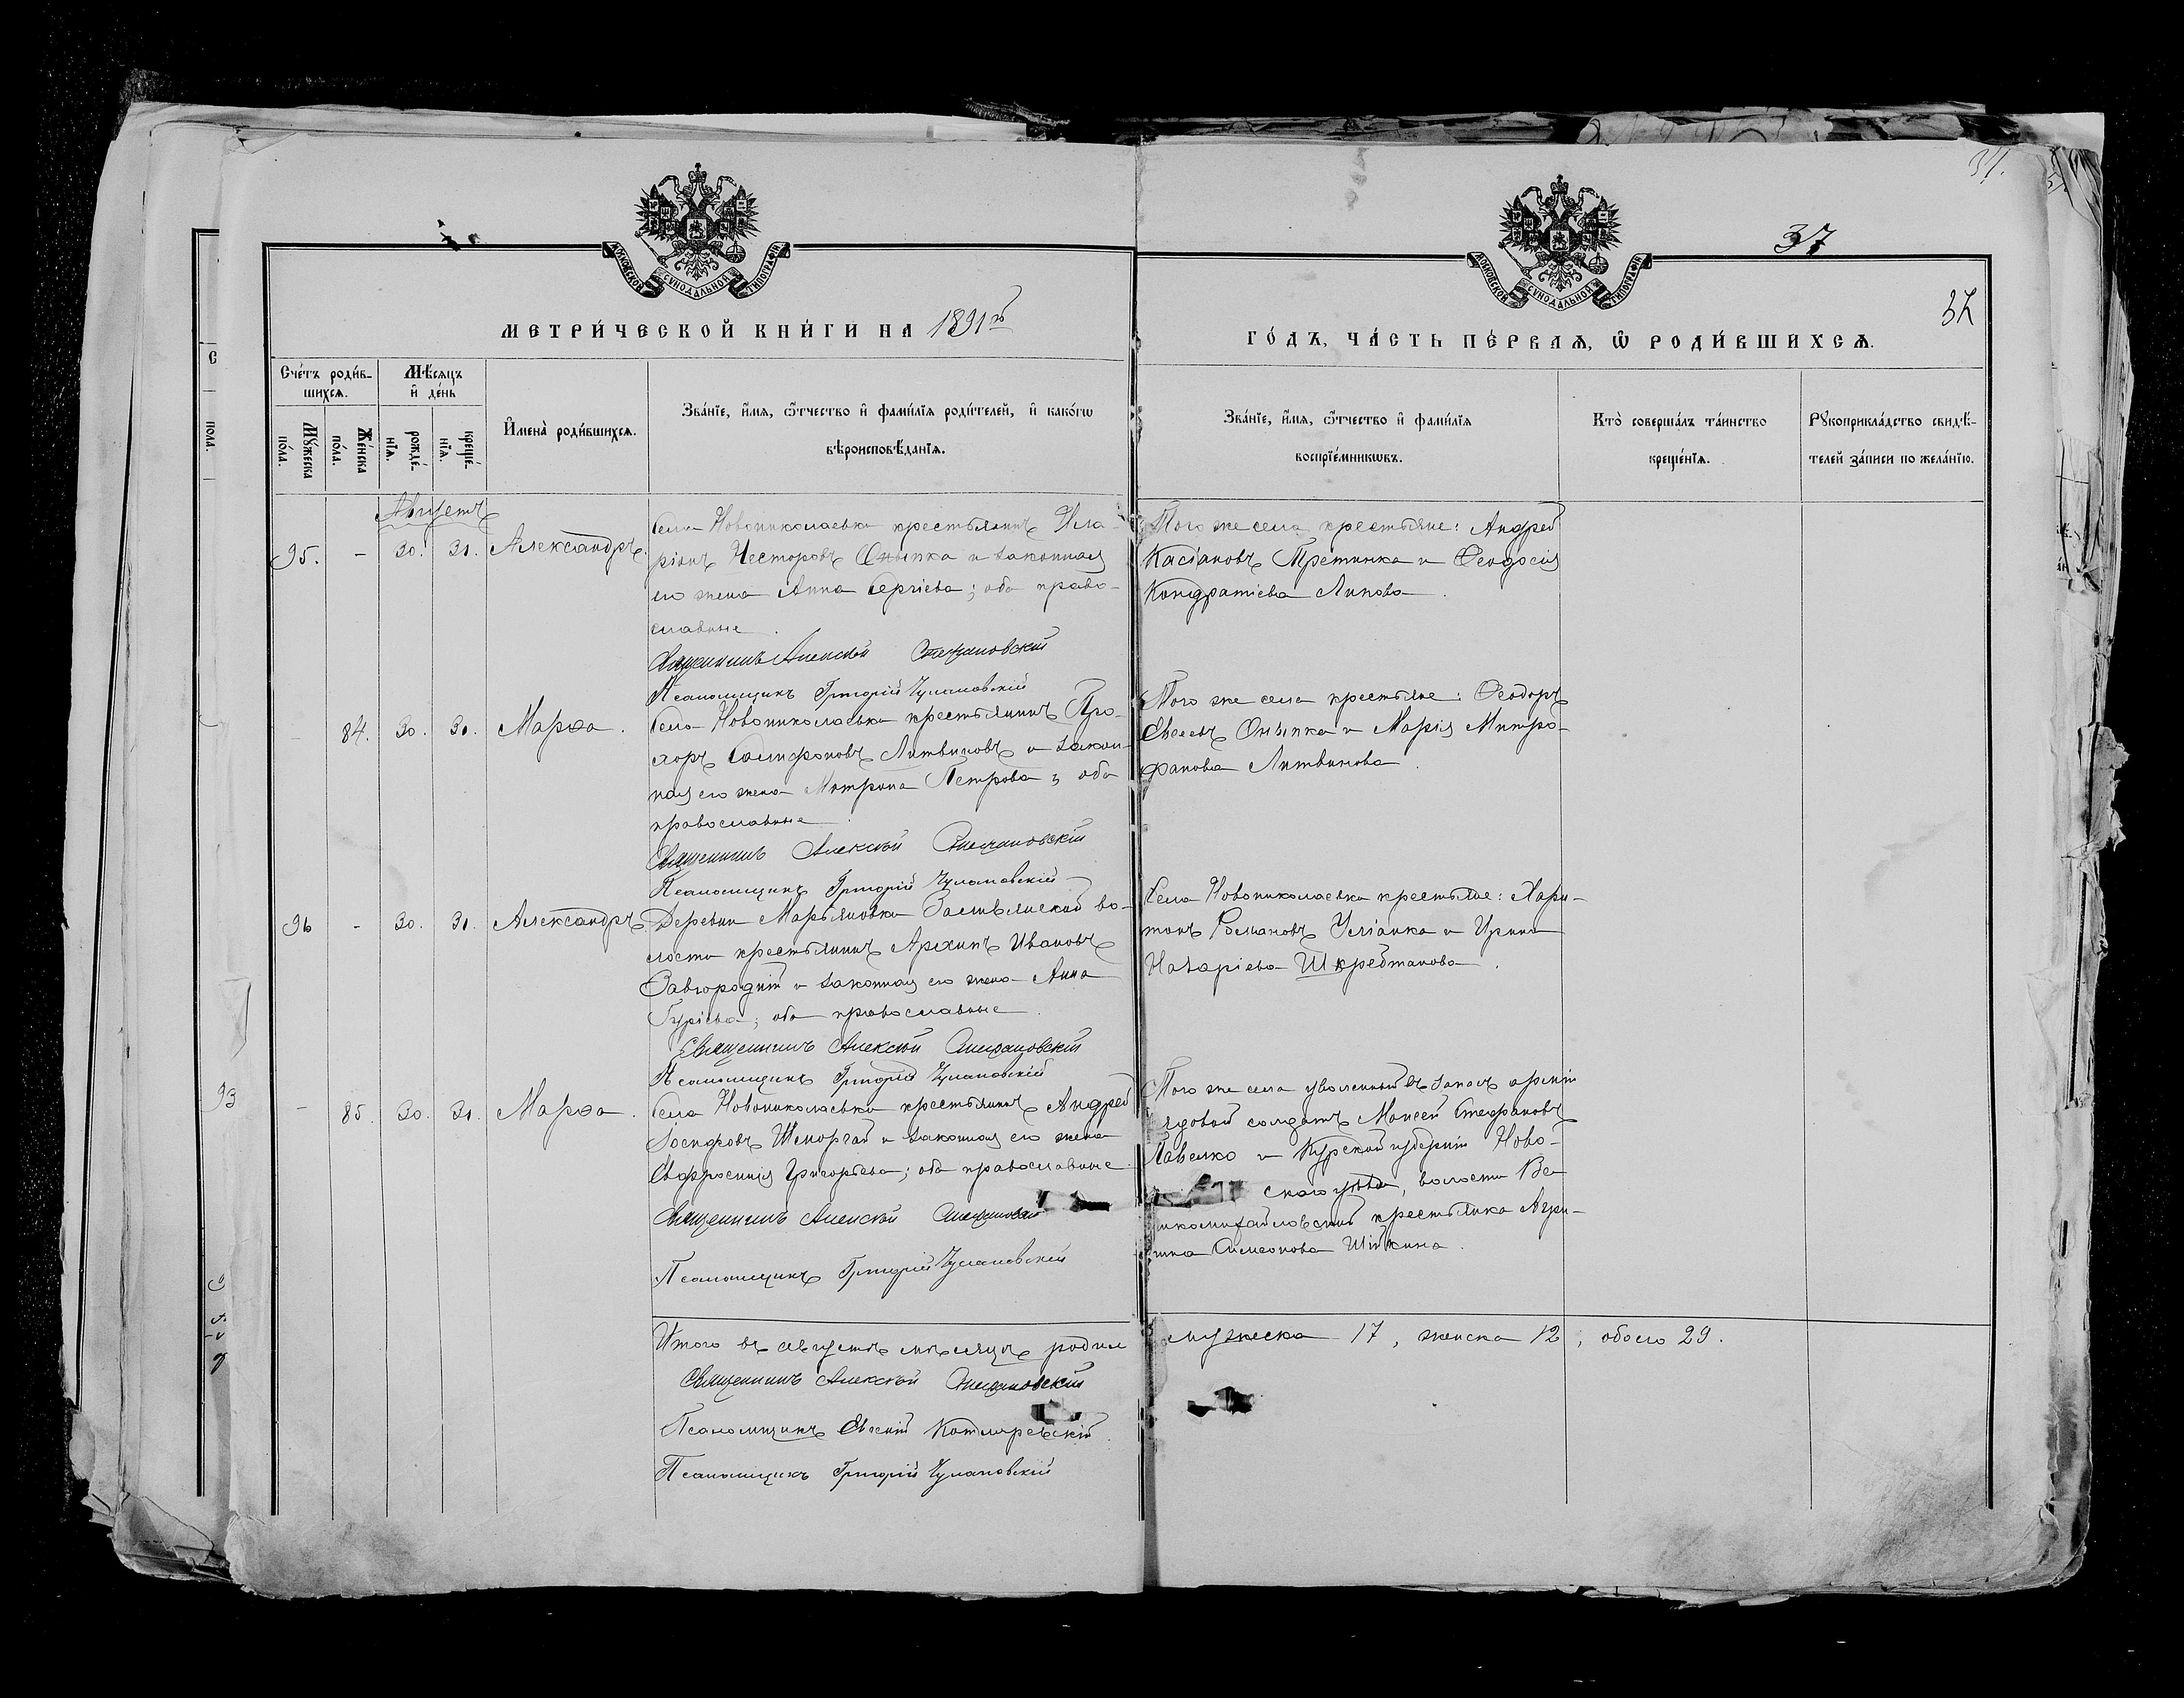 37.
37
32
МОСКОВСКОЙ СѴНОДАЛЬНОЙ ТИПОГРАФІИ
МОСКОВСКОЙ СѴНОДАЛЬНОЙ ТИПОГРАФІИ
МЕТРИ́ЧЕСКОЙ КНИ́ГИ НА 1891й
ГО́ДЪ, ЧА́СТЬ ПЕ́РВАѦ, Ѽ РОДИ́ВШИХСѦ.
Сче́тъ роди́в-
шихсѧ.
Мꙋ́жеска
по́ла.
Же́нска
по́ла.
Мѣ́сѧцъ
и҆ де́нь
рожде́-
нїѧ.
креще́-
нїѧ.
И҆мена̀ роди́вшихсѧ.
Зва́нїе, и҆́мѧ, ѻ҆́тчество и҆ фами́лїѧ роди́телей, и҆ како́гѡ
вѣроисповѣ́данїѧ.
Зва́нїе, и҆́мѧ, ѻ҆́тчество и҆ фами́лїѧ
воспрїе́мникѡвъ.
Кто̀ соверша́лъ та́инство
креще́нїѧ.
Рꙋкоприкла́дство свидѣ́-
телей за́писи по жела́нїю.
Августъ
95. - 30. 31. Александръ.
Села Новониколаевки крестьянинъ Ила-
ріонъ Несторовъ Онипка и законная
его жена Анна Сергіева; оба право-
славные.
Священникъ Алексѣй Стефановскій
Псаломщикъ Григорій Чулановскій
Того же села крестьяне: Андрей
Касіановъ Третинка и Ѳеодосія
Кондратіева Липова.
- 84. 30. 31. Марѳа.
Села Новониколаевки крестьянинъ Про-
хоръ Самсоновъ Литвиновъ и закон-
ная его жена Матрона Петрова; оба
православные.
Священникъ Алексѣй Стефановскій
Псаломщикъ Григорій Чулановскій
Того же села крестьяне: Ѳеодоръ
Онипка и Марія Митро-
фанова Литвинова.
96 - 30. 31. Александръ.
Деревни Марьяновки волости крестьянинъ Архипъ Ивановъ
Завгородній и законная его жена Анна
Гуріева; оба православные.
Священникъ Алексѣй Стефановскій
Псаломщикъ Григорій Чулановскій
Села Новониколаевки крестьяне: Хари-
тонъ Романовъ и Ирина
Назаріева
- 85. 30. 31. Марѳа.
Села Новониколаевки крестьянинъ Андрей
Іосифовъ Шморгай и законная его жена
Евфросинія Григорьева; оба православные.
Священникъ Алексѣй Стефановскій
Псаломщикъ Григорій Чулановскій
Того же села уволенный въ запасъ арміи
рядовой солдатъ Моисей Стефановъ
Павелко и Курской губерніи Ново-
скаго уѣзда, волости Ве-
ликомихайловской крестьянка Агри-
пина Симеонова Шинкина.
Итого въ августѣ мѣсяцѣ родил
мужеска 17, женска 12, обоего 29.
Священникъ Алексѣй Стефановскій
Псаломщикъ Евсевій Котляревскій.
Псаломщикъ Григорій Чулановскій
93